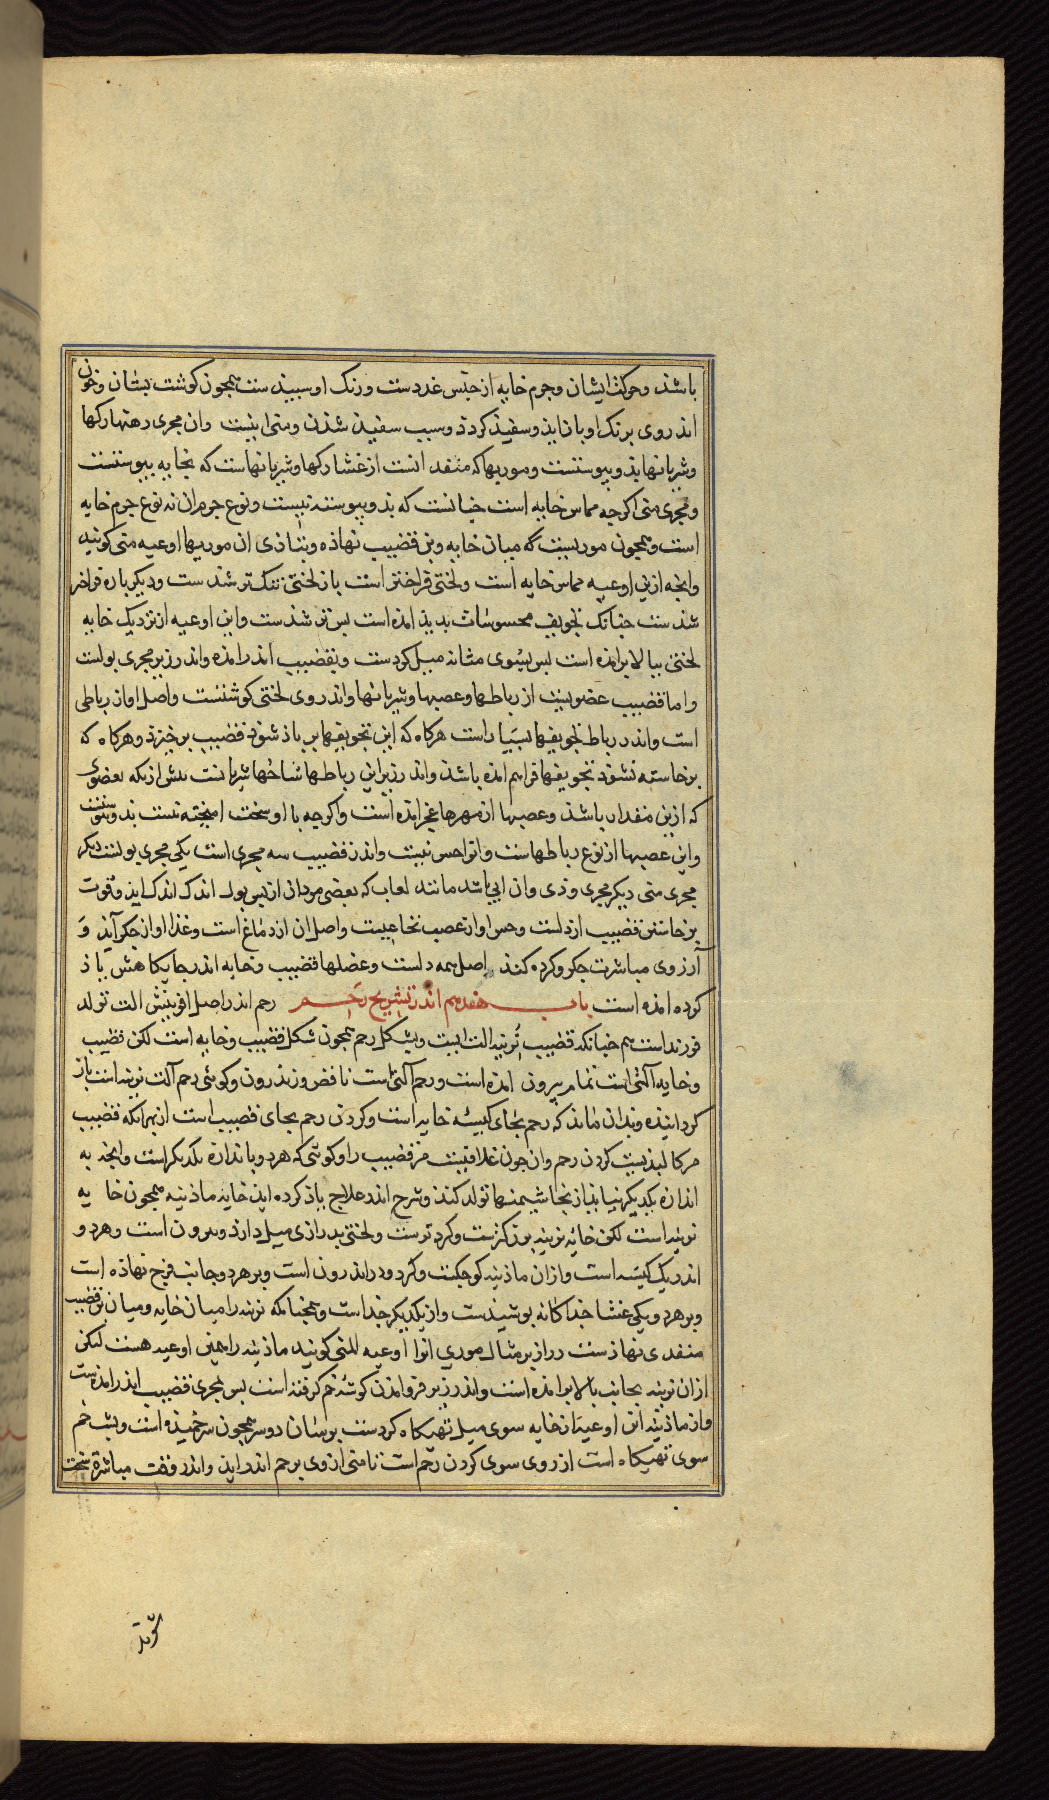 باشذ وحرکت ایشان وجرم خایه از جنس غددست ورنک او سپیذست همجون کوشت پستان وخون
اندروی برنک او باز آیذ وسفیذ کردد وسبب سفیذ شذن ومنی اینست وان مجری رهتها رکها
وشریانها بذو پیوستست وموریها که منفذ انست از غشا رکها وشریانهاست که بخایه پیوستست
ومجری منی اکرجه مماس خایه است جنانست که بذو پیوسته نیست ونوع جرم ان نه نوع جرم خایه
است وهمجون موریست که میان خایه وبن قضیب نهاذه وبتازی ان موریها اوعیه منی کویند
وانجه ازین اوعیه مماس خایه است ولختی فراختر است باز لختی تنکتر شذست ودیکرباره فراختر
شذست جنانک تجویف محسوسات بدیذ امذه است پس تر شذست واین اوعیه از نزدیک خایه
لختی ببالا برامذه است پس بسوی مثانه میل کردست وبقضیب اندرامذه واندر زیر مجری بولست
واما قضیب عضویست از رباطها وعصبها وشریانها واندروی لختی کوشتست واصل او از رباطی
است واندر رباط تجویفها بسیار است هرکاه که این تجویفها پر باذ شوذ قضیب برخیزذ وهرکاه که
برخاسته نشود تجویفها فراهم امذه باشذ واندر زیر این رباطها شاخها شریانست بیش ازانکه بعضوی
که ازین مقدار باشذ وعصبها از مهرها عجز امذه است واکرجه با او سخت امیخته نیست بذو پیوستست
واین عصبها از نوع رباطهاست واورا حس نیست واندر قضیب سه مجری است یکی مجری بولست دیکر
مجری منی دیکر مجری وذی وان ابی باشد مانند لعاب که بعضی مردان از پس بول اندک اندک ایذ وقوت
برخاستن قضیب از دلست وحس او از عصب نخاعیست واصل ان از دماغ است وغذا او از جکر آیذ و
آرزوی مباشرت جکر وکرده کند اصل همه دلست وعضلها قضیب وخایه اندر جایکاهش یاذ
کرده امده است باب هفدهم اندر تشریح رحم رحم اندر اصل افرینش الت تولد
فرزنداست هم جنانکه قضیب نرینه الت ایست وشکل رحم همجون شکل قضیب وخایه است لکن قضیب
وخایه آلتی است تمام بیرون امذه است ورحم آلتی است ناقص وزندرون وکوئی رحم آلت نرینه است باز
کردانیذه وبدان ماند که رحم بجای کیسه خایه است وکردن رحم بجای قضیب است از بهرانکه قضیب
مرکالبذیست کردن رحم وان جون غلافیست مر قضیب را وکوئی که هردو باندازه یکدیکراست وانجه به
اندازه یکدیکر نیایذ از نجا شیمنها تولد کند وشرح اندر علاج یاذ کرده ایذ خایه ماذینه همجون خایه
نرینه است لکن خایه نرینه بزرکترست وکردترست ولختی بدرازی میل دارد وبیرون است وهردو
اندر یک کیسه است وازان ماذینه کوجکست وکرد ودراندرون است وبرهردو جانب فرج نهاذه است
وبرهر دو یکی غشا جذاکانه پوشیذست وازیکدیکر جذاست وهمجنانکه نرینه را میان خایه ومیان بن قضیب
منفذی نهاذست دراز بر مثال موری انرا اوعیه المنی کویند ماذینه را همین اوعیه هست لیکن
ازان نرینه بجانب بالا برامذه است واندر زیر فرو امذن کوشه خم کرفته است پس بمجری قضیب اندر امذه است
وازماذینه این اوعیه از خایه سوی میل تهیکاه کردست برسان دوسر همجون سر خمیذه است وپشت خم
سوی تهیکاه است ازروی سوی کردن رحم است تا منی ازوی برحم اندرایذ واندر وقت مباشرة سخت